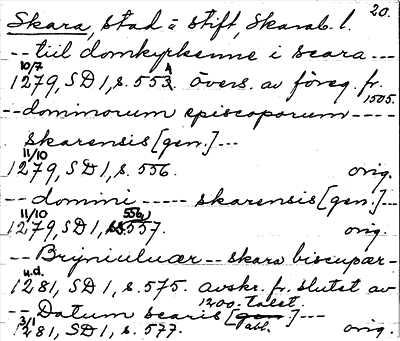 20.
Skara, stad i stift, Skarab. l.
-- tiil domkyrkenne i scara ---
10/7
1279, SD 1, s. 553. övers. av föreg. fr. 1505.
-- dominorum episcoporum ----
skarensis [gen.] ---
11/10
1279, SD 1, s. 556. orig.
-- domini ----- skarensis [gen.] ---
11/10
1279, SD 1, s. 557. orig.
556,
-- Bryniuluær -- skara biscupær -
u.d.
1281, SD 1, s. 575. avskr. fr. slutet av
1200-talet.
-- Datum scaris [abl.] ---
1281, SD 1, s. 577. orig.